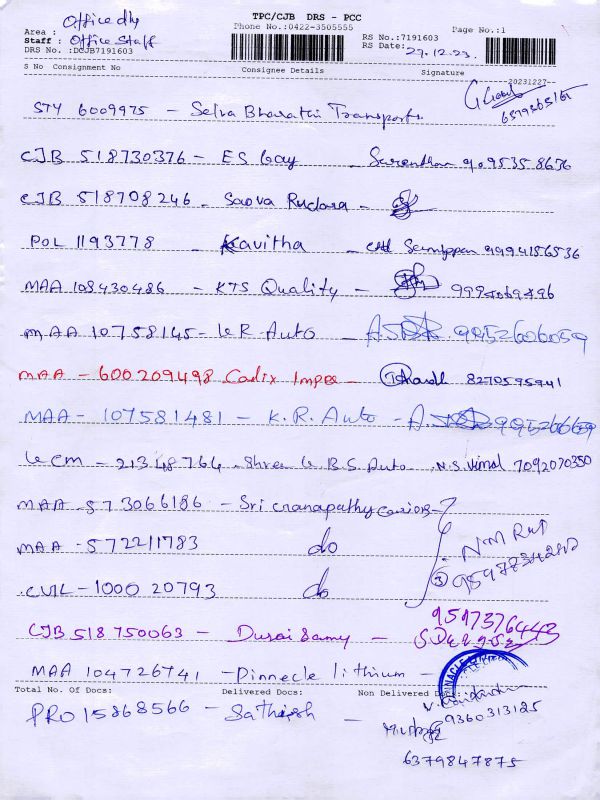 TPC/CJB DRS - PCC
Office dly
Phone No.:0422-3505555
Page No.:1
Area :
RS No.:7191603
Staff : Office Staff
RS Date: 27.12.23
DRS No. :DCJB7191603
S No Consignment No Consignee Details Signature
20231227
STY 6009975 - Selva Bharathi Transports
CJB 518730376 - ES Gay
CJB 518708246 -
POL 1193778 Kavitha 9994156536
MAA 108430486 - KTS Quality -
MAA 10758145 - K R Auto - 9952606059
MAA - 600209498 Cadix Impex - 8270595941
MAA - 107581481 - K.R. Auto -
21348764 - Shree B.S. Auto N.S. Vimal 7092070350
MAA - 573066186 - Sri Ganapathy
MAA - 572211783 do
CVIL - 1000 20793 do
9597376443
CJB 518750063 - Duraisamy -
MAA 104726741 - Pinnecle lithium -
Total No. Of Docs: Delivered Docs: Non Delivered Docs:
PRO 15868566 - Sathish -
9360313125
6379847875